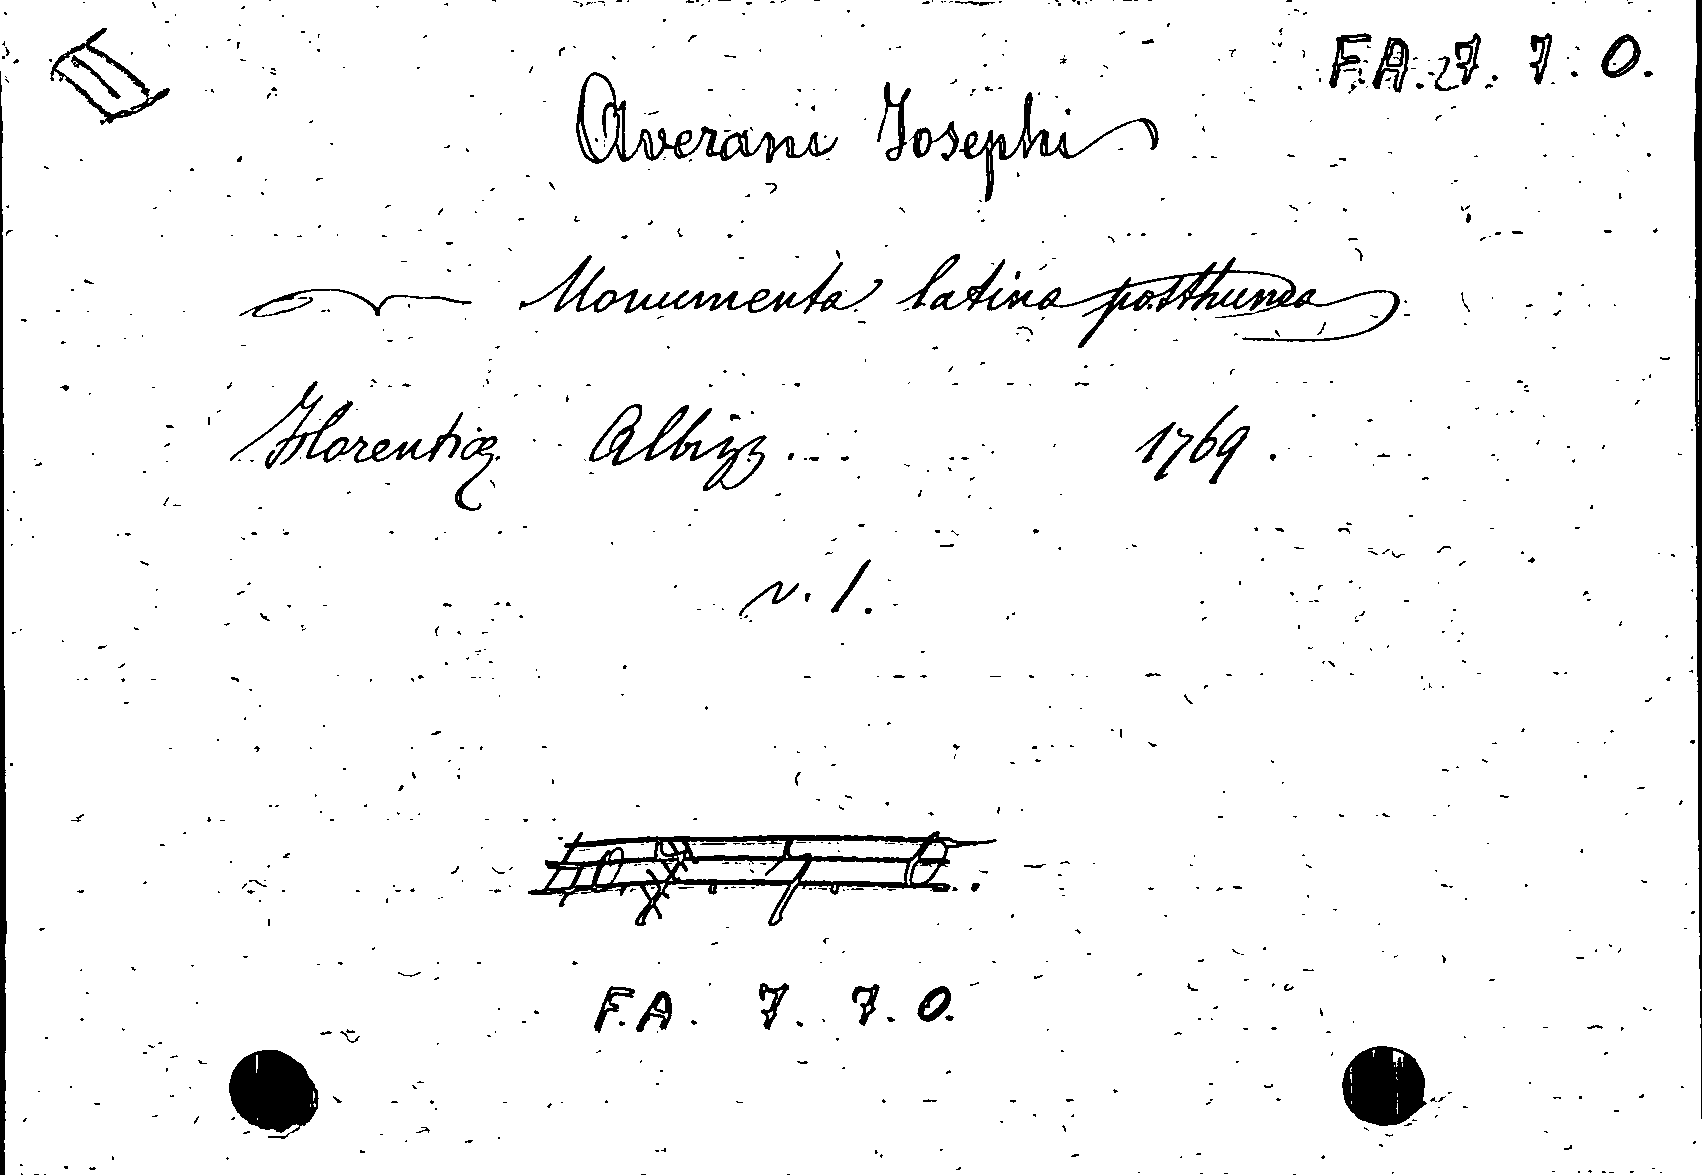 F.A. 7. 7. O.
Averani Josephi
Monumenta latina posthuma
Florentiæ Albizz... 1769.
v. 1.
F.A. 7. 7. O.